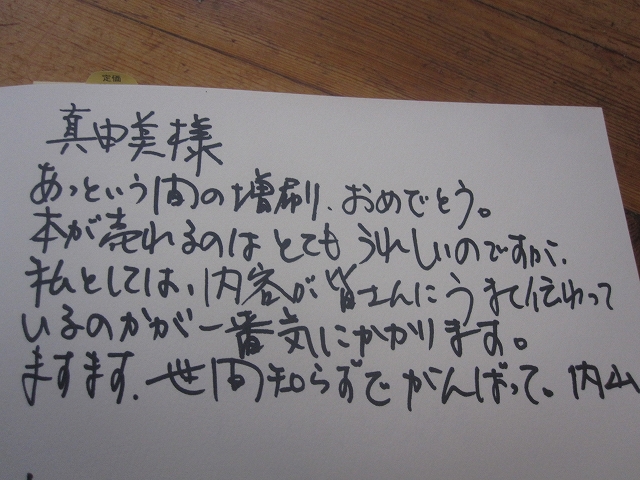 定価
真由美様
あっという間の増刷、おめでとう。
本が売れるのはとてもうれしいのですが、
私としては、内容が皆さんにうまく伝わって
いるのかが一番気にかかります。
ますます、世間知らずでがんばって。内山